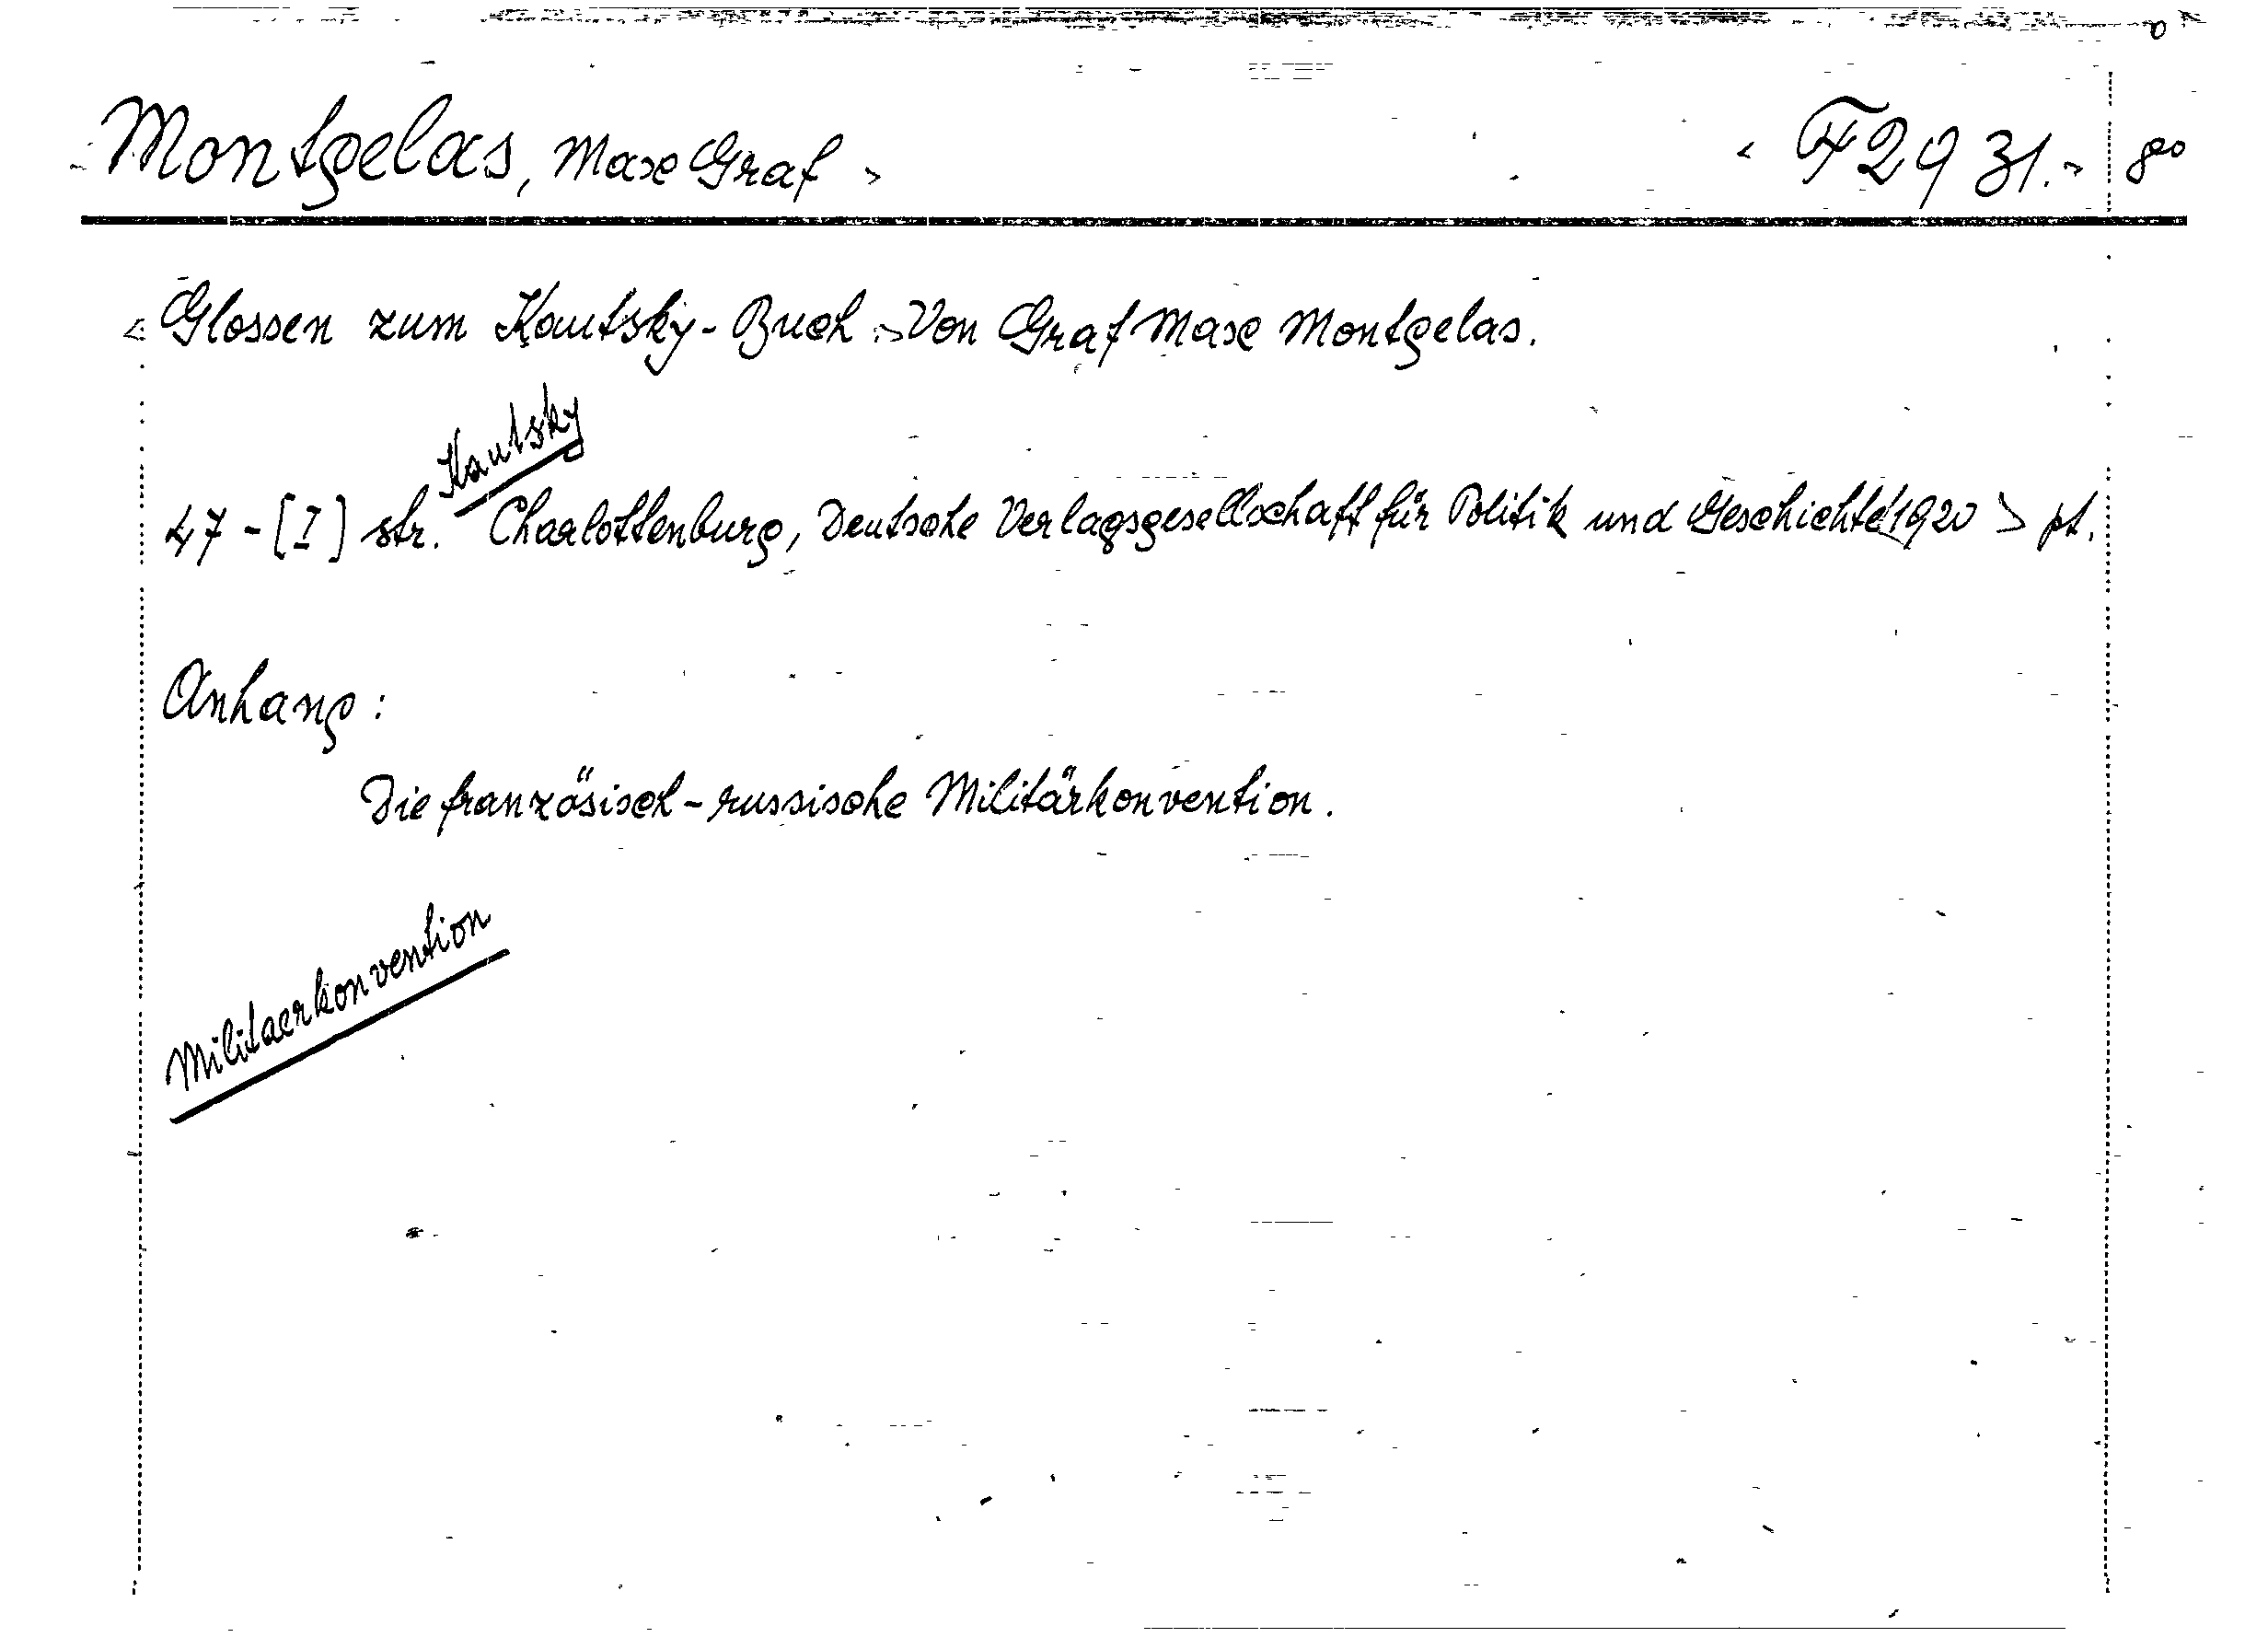 Montgelas, Max Graf > < F 29 31. > 8°
< Glossen zum Kautsky-Buch. > Von Graf Max Montgelas.
Kautsky
47 - [I] str. Charlottenburg, Deutsche Verlagsgesellschaft für Politik und Geschichte < 1920 > pt.
Anhang:
Die französisch-russische Militärkonvention.
Militaerkonvention